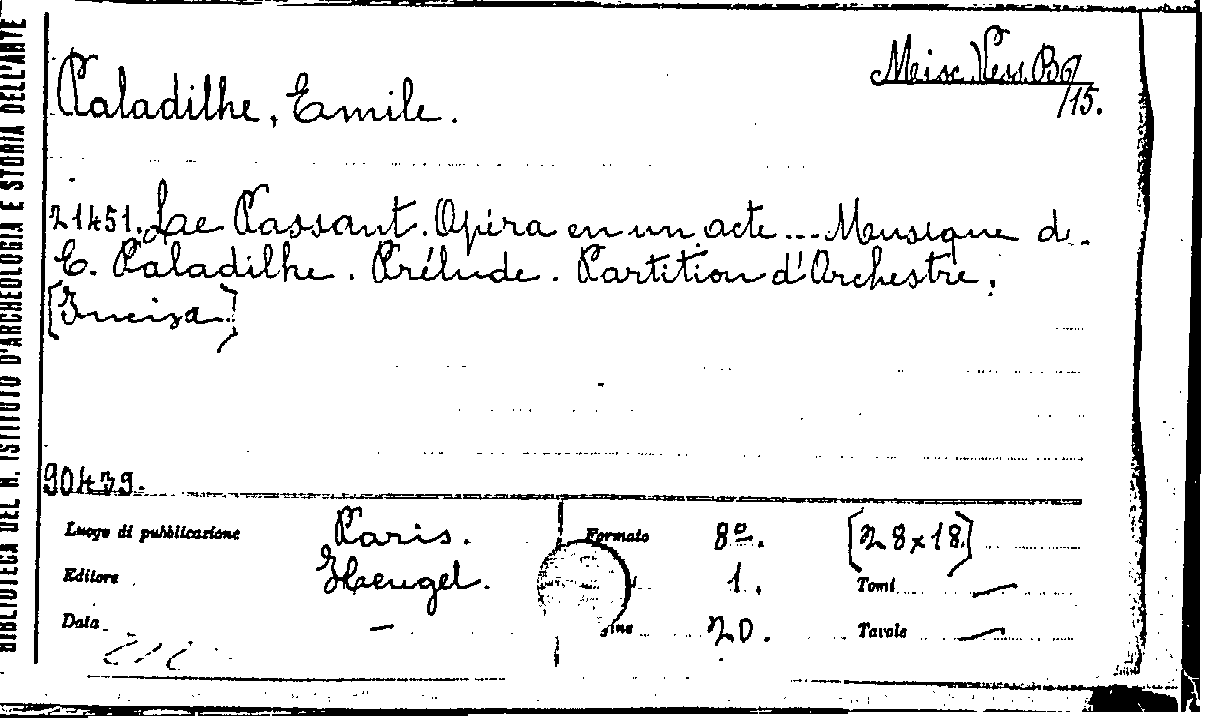 BIBLIOTECA DEL R. ISTITUTO D'ARCHEOLOGIA E STORIA DELL'ARTE
Misc. Vess. B6
/15.
Paladilhe, Emile.
21451. Le Passant. Opéra en un acte... Musique de
E. Paladilhe. Prélude. Partition d'Orchestre.
[Incisa]
90439.
Luogo di pubblicazione Paris. Formato 8º. [28x18]
Editore Heugel. 1. Tomi —
Data — 20. Tavole —